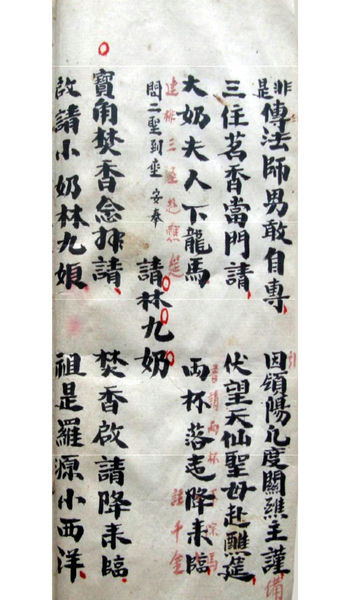 非是傳法師男敢自專 因領陽凡度關醮主謹備
三徃茗香當門請 伏望天仙聖母赴醮筵
大奶夫人下龍馬 兩杯落走降來臨
問二聖到壇安奉
請林九奶
寶角焚香念拜請 焚香啟請降來臨
啟請小奶林九娘 祖是羅源小西洋